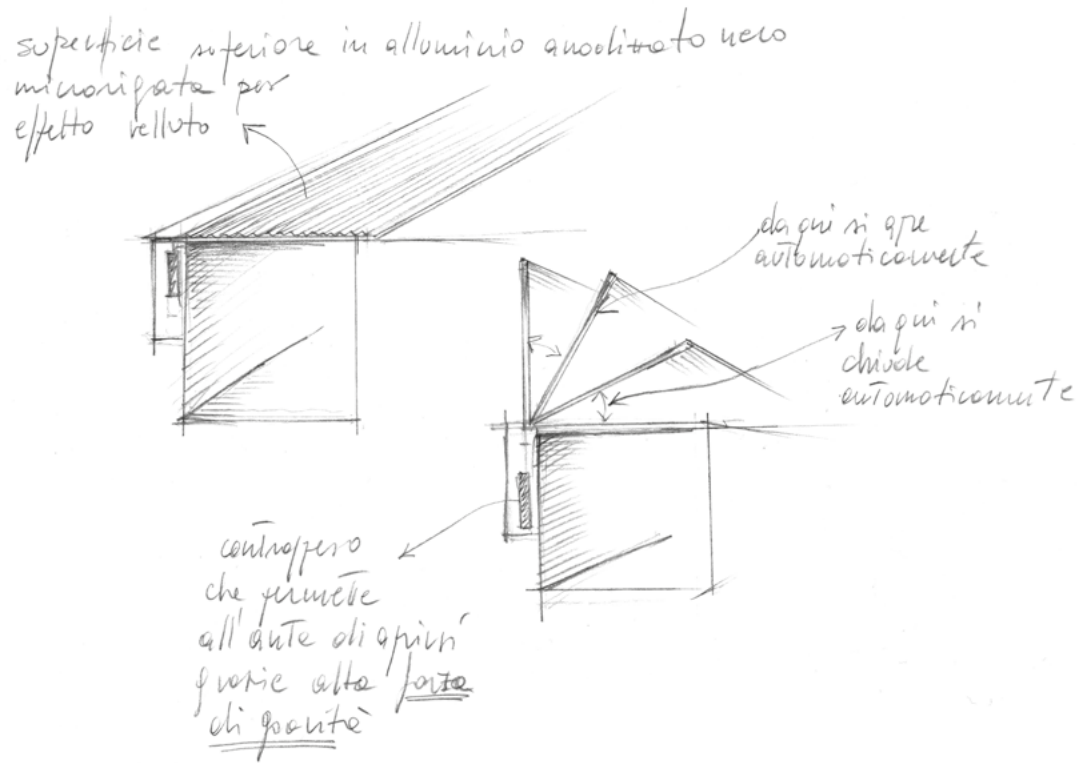 superficie superiore in alluminio anodizzato nero
microrigata per
effetto velluto
da qui si apre
automaticamente
da qui si
chiude
automaticamente
contrappeso
che permette
all'anta di aprirsi
grazie alla forza
di gravità